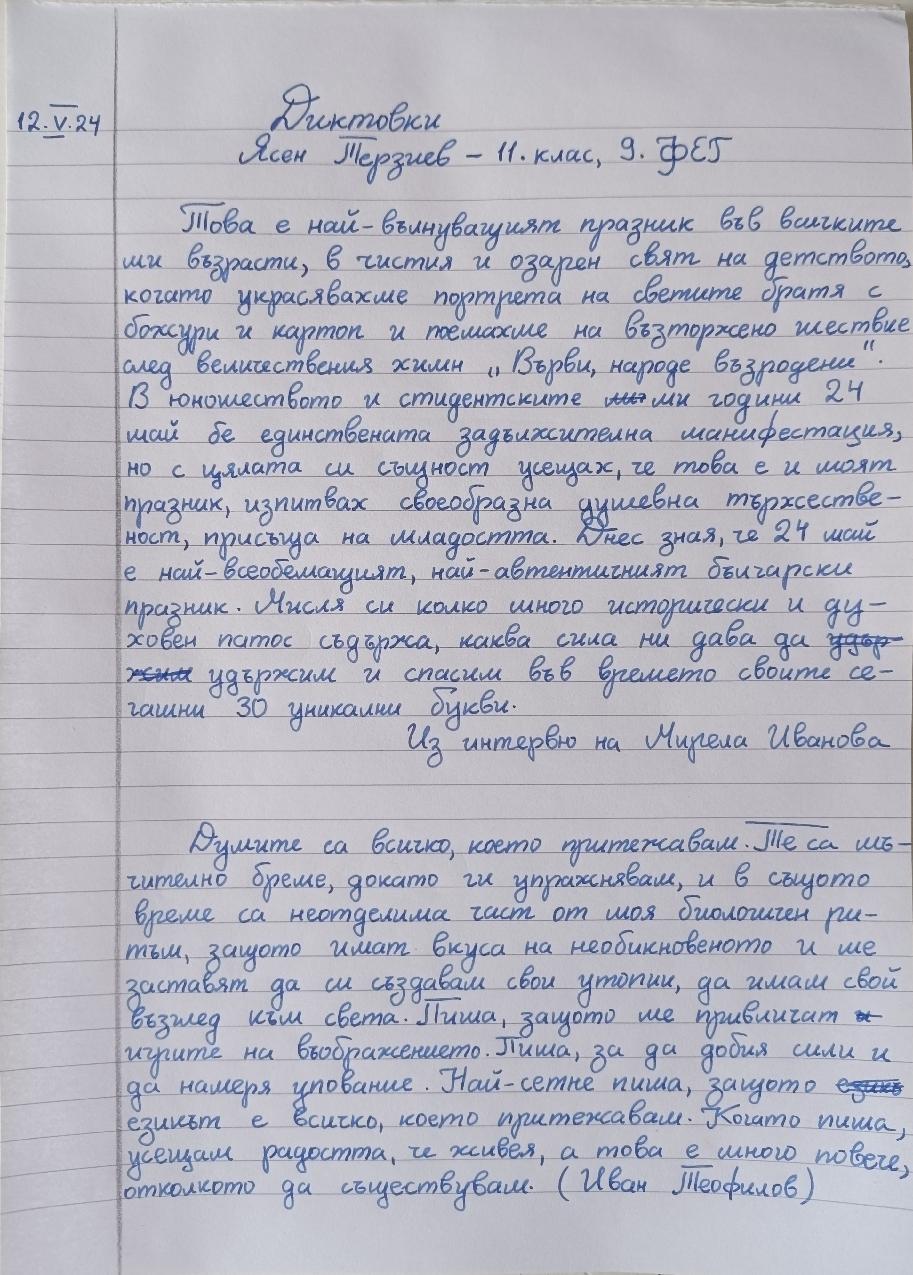 12.V.24
Диктовки
Ясен Терзиев – 11. клас, 9. ФЕГ
Това е най-вълнуващият празник във всичките
ми възрасти, в чистия и озарен свят на детството,
когато украсявахме портрета на светите братя с
божури и картоп и поемахме на възторжено шествие
след величествения химн „Върви, народе възродени“.
В юношеството и студентските ~~ми~~ ми години 24
май бе единствената задължителна манифестация,
но с цялата си същност усещах, че това е и моят
празник, изпитвах своеобразна душевна тържестве-
ност, присъща на младостта. Днес зная, че 24 май
е най-всеобемащият, най-автентичният български
празник. Мисля си колко много исторически и ду-
ховен патос съдържа, каква сила ни дава да ~~удър-~~
~~жим~~ удържим и спасим във времето своите се-
гашни 30 уникални букви.
Из интервю на Мирела Иванова
Думите са всичко, което притежавам. Те са мъ-
чително бреме, докато ги упражнявам, и в същото
време са неотделима част от моя биологичен ри-
тъм, защото имат вкуса на необикновеното и ме
заставят да си създавам свои утопии, да имам свой
възглед към света. Пиша, защото ме привличат ~~и~~
игрите на въображението. Пиша, за да добия сили и
да намеря упование. Най-сетне пиша, защото ~~езикъ~~
езикът е всичко, което притежавам. Когато пиша,
усещам радостта, че живея, а това е много повече,
отколкото да съществувам. (Иван Теофилов)